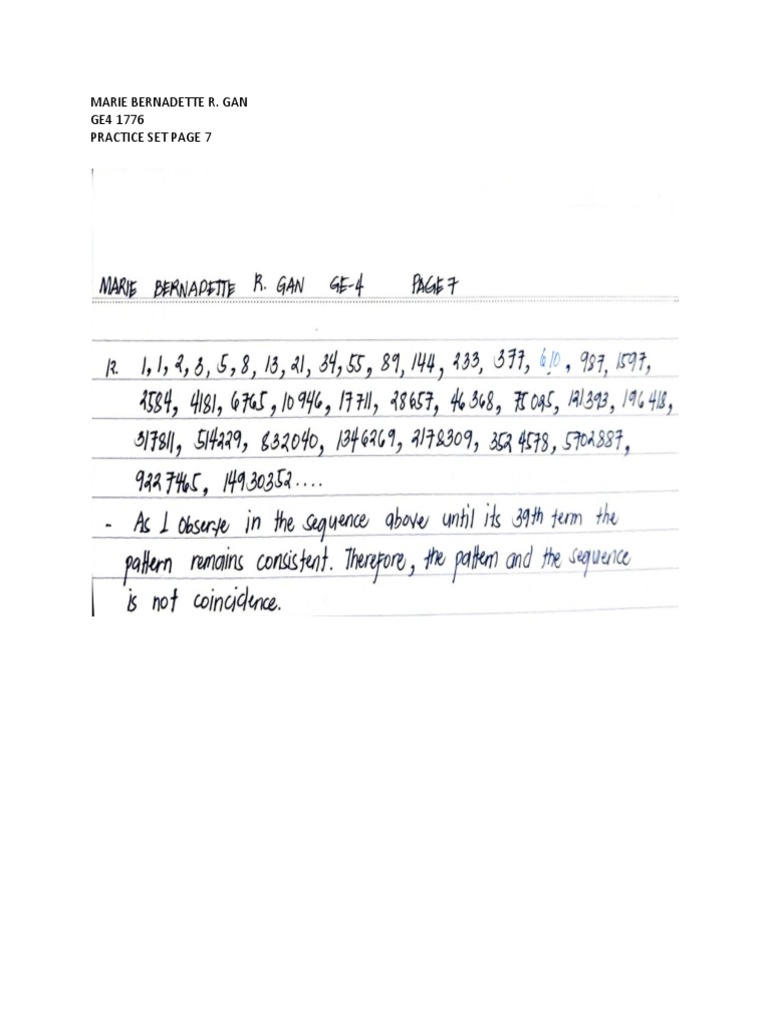 MARIE BERNADETTE R. GAN
GE4 1776
PRACTICE SET PAGE 7
MARIE BERNADETTE R. GAN GE-4 PAGE 7
12. 1, 1, 2, 3, 5, 8, 13, 21, 34, 55, 89, 144, 233, 377, 610, 987, 1597,
2584, 4181, 6765, 10946, 17711, 28657, 46368, 75025, 121393, 196418,
317811, 514229, 832040, 1346269, 2178309, 3524578, 5702887,
9227465, 14930352....
- As I observe in the sequence above until its 39th term the
pattern remains consistent. Therefore, the pattern and the sequence
is not coincidence.